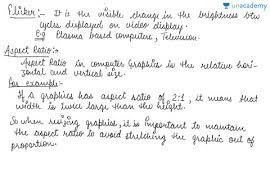 unacademy
Flicker:- It is the visible change in the brightness b/w
cycles displayed on video display.
E.g. Plasma based computers, Television.
Aspect Ratio:-
Aspect Ratio in computer Graphics is the relative hori-
zontal and vertical size.
For example:-
If a graphics has aspect ratio of 2:1, it means that
width is twice large than the height.
So when resizing graphics, it is Important to maintain
the aspect ratio to avoid stretching the graphic out of
proportion.